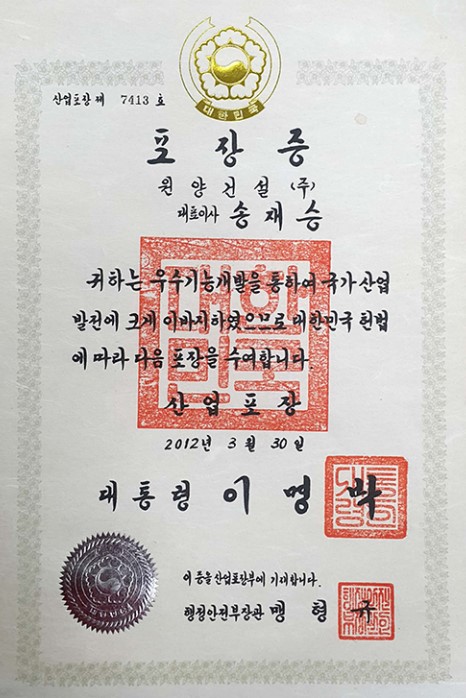 대한민국
산업포장 제 7413 호
포장증
원양건설(주)
대표이사 송재승
귀하는 우수기능개발을 통하여 국가산업
발전에 크게 이바지하였으므로 대한민국 헌법
에 따라 다음 포장을 수여합니다.
산업포장
2012년 3월 30일
대통령 이명박
이 증을 산업포장부에 기재합니다.
행정안전부장관 맹형규